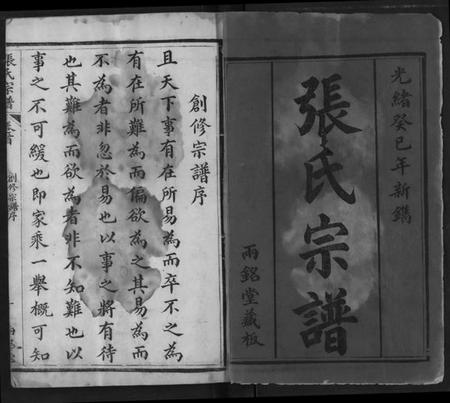 光緒癸巳年新鐫
張氏宗譜
兩銘堂藏板
創修宗譜序
且天下事有在所易為而卒不之為
有在所難為而偏欲為之其易為而
不為者非忽於易也以事之將有待
也其難為而欲為者非不知難也以
事之不可緩也即家乘一舉概可知
張氏宗譜
創修宗譜序